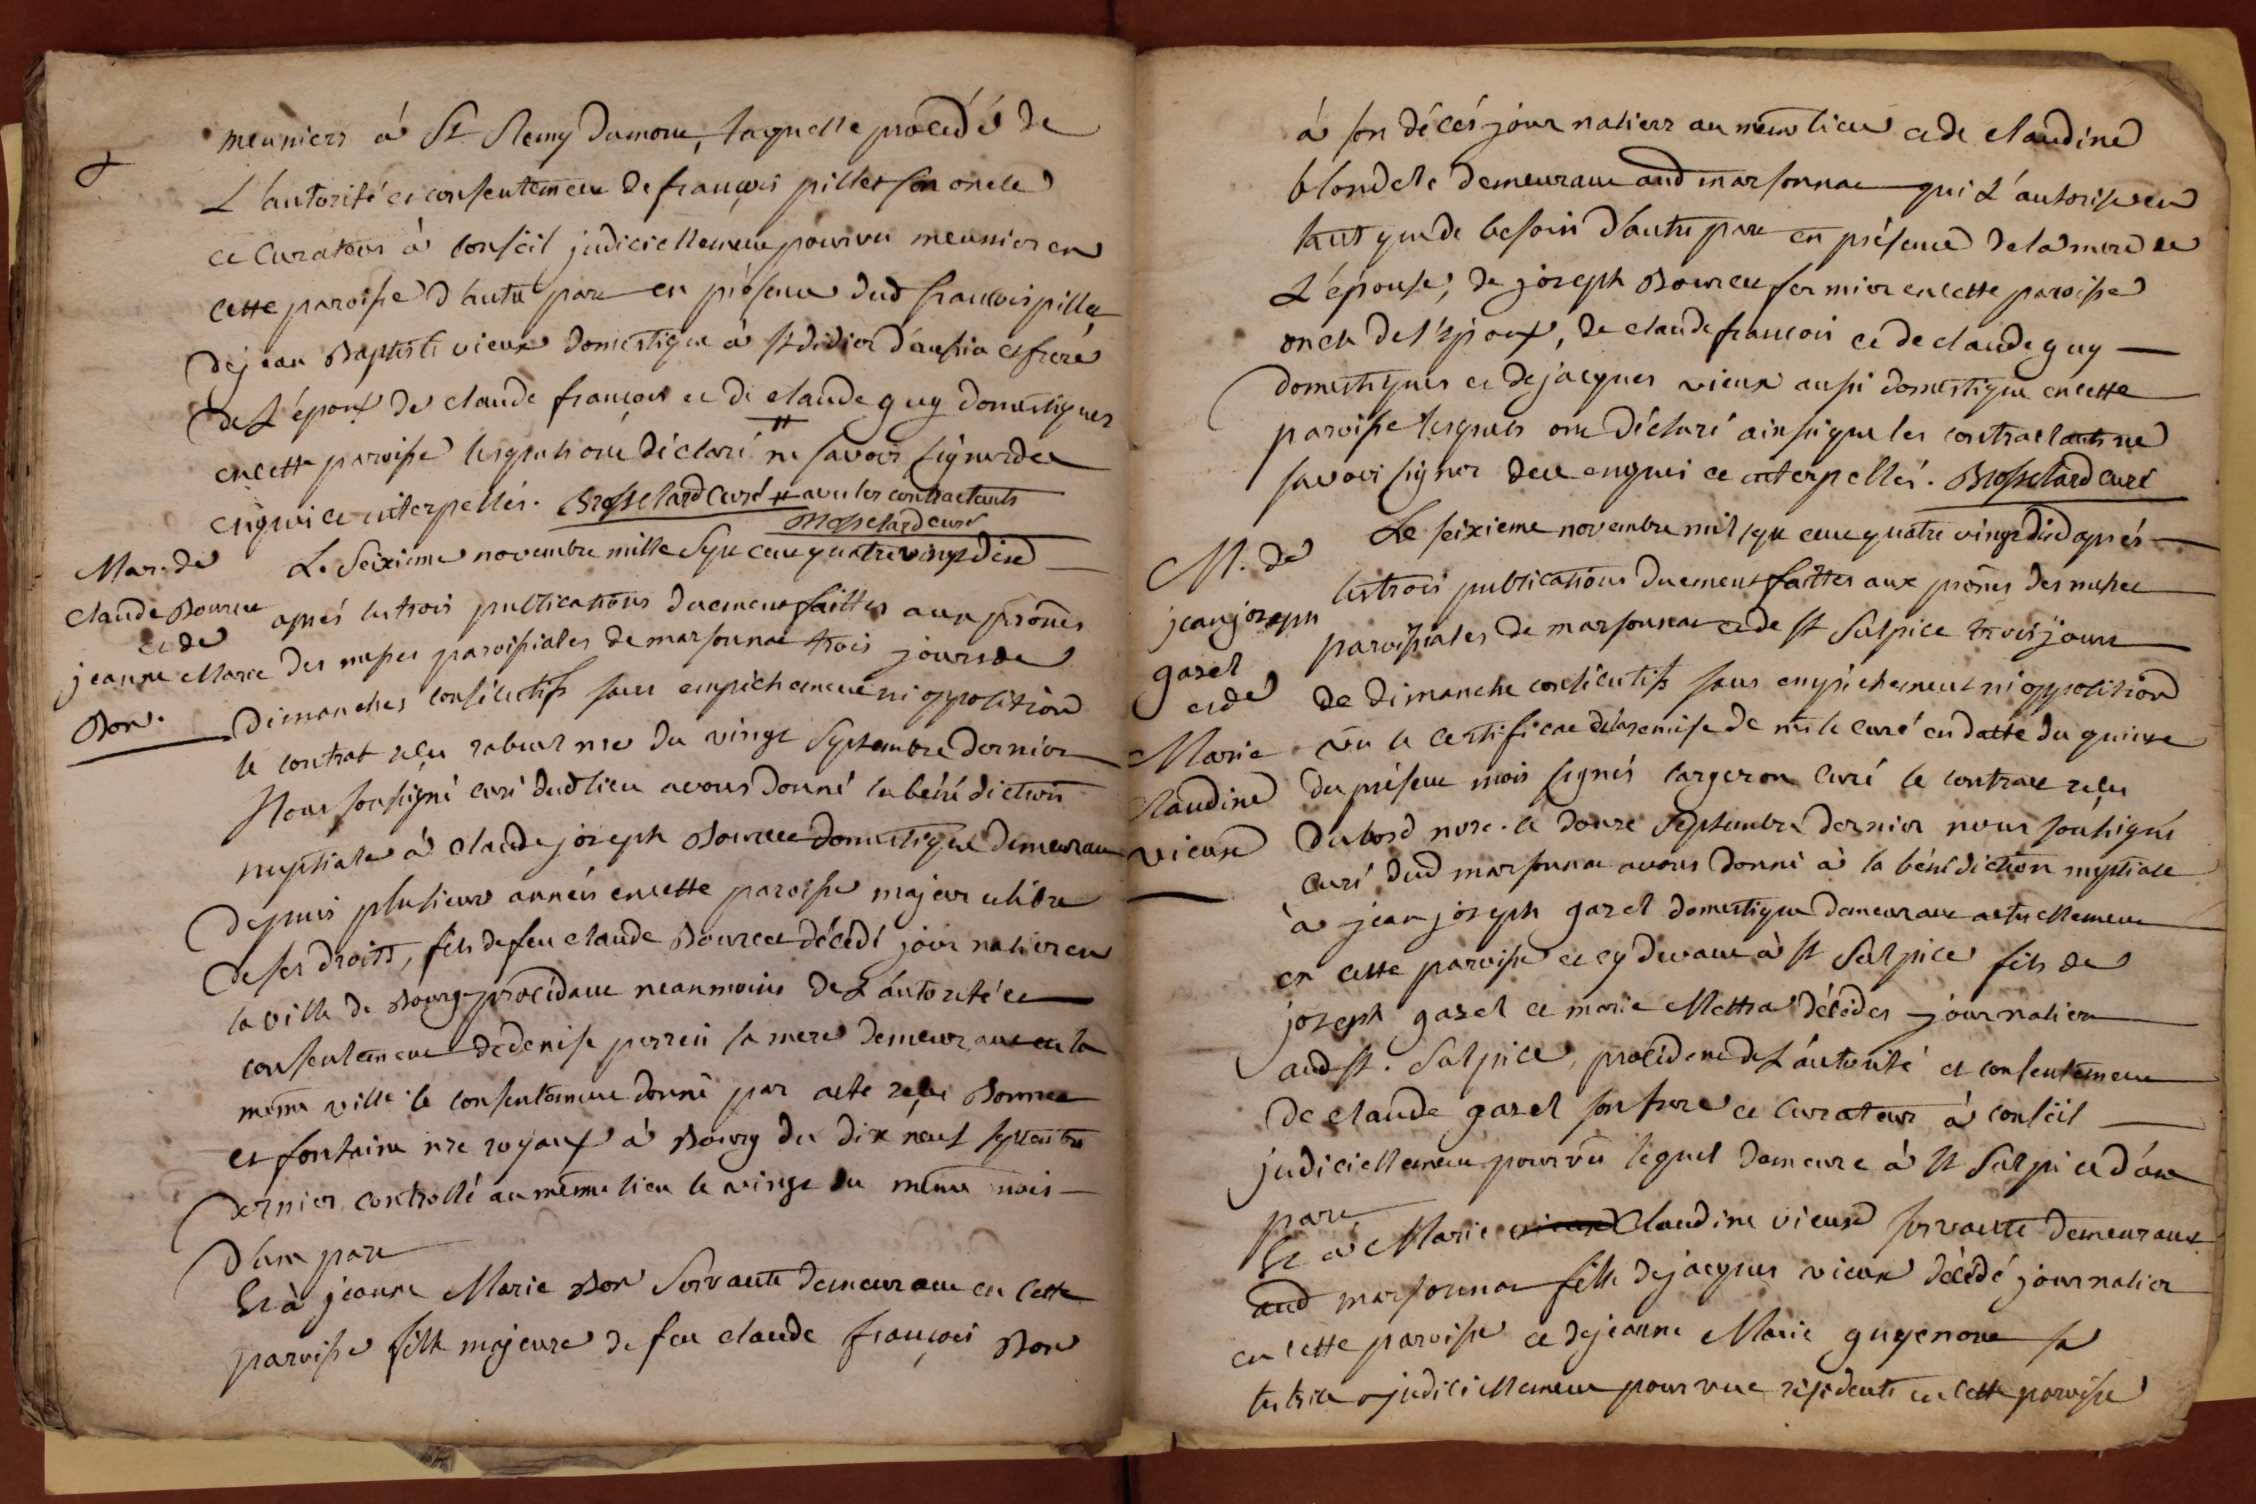 meuniers à St Remy Dumont, laquelle procedé de
L'autorité et consentement de françois pillet son oncle
et Curateur à conseil judiciellement pourvu meunier en
cette paroisse d'autre part en présence dud françois pillet
de jean Baptiste vieux domestique à st didier d'aussia et frere
de L'époux de claude françois et de claude guy domestiques
en cette paroisse lesquels ont déclaré # ne savoir signer de ce
enquis et interpellés. Brosselard Curé # avec les contractants
Brosselard curé
Mar. de
Claude Bourcet
et de
jeanne Marie
Bon.
Le seizieme novembre mille sept cent quatre vingt dix
après les trois publications duement faittes aux prônes
des messes paroissiales de marsonnas trois jours de
Dimanches consécutifs sans empêchement ni opposition
le contrat reçu rabuel nre du vingt septembre dernier
Nous soussigné curé dudt lieu avons donné la bénédiction
nuptiale à claude joseph Bourcet domestique demeurant
depuis plusieurs années en cette paroisse majeur et libre
de ses droits, fils de feu claude Bourcet décédé journalier en
la ville de Bourg procédant neanmoins de L'autorité et
consentement de denise perrin sa mere demeurant en la
même ville le consentement donné par acte reçu
et fontaine nre royaux à Bourg du dix neuf septembre
dernier controllé au même lieu le vingt du même mois
d'une part
Et à jeanne Marie Bon servante demeurant en cette
paroisse fille majeure de feu claude françois Bon
à son décés journalier au même lieu et de claudine
blondel demeurant aud marsonnas qui L'autorise en
tant que de besoin d'autre part en présence de la mere de
L'épouse, de joseph Bourcet fermier en cette paroisse
oncle de l'epoux, de claude françois et de claude guy
domestiques et de jacques vieux aussi domestique en cette
paroisse lesquels ont déclaré ainsi que les contractants ne
savoir signer de ce enquis et interpellés. Brosselard curé
M. de
jean joseph
gazel
et de
Marie
Claudine
vieux
Le seizieme novembre mil sept cent quatre vingt dix après
les trois publications duement faittes aux prônes des messes
paroissiales de marsonnas et de st Sulpice trois jours
de Dimanche consécutifs sans empêchement ni opposition
vu le certificat de la remise de mr le curé en datte du quinze
du présent mois signé largeron curé le contrat reçu
Dubord nore. le douze septembre dernier nous soussigné
curé dud marsonnas avons donné à la bénédiction nuptiale
à jean joseph gazel domestique demeurant actuellement
en cette paroisse et cy devant à st Sulpice fils de
joseph gazel et marie Mettra décédés journaliers
aud st. Sulpice, procédent de L'autorité et consentement
de claude gazel son frere et curateur à conseil
judiciellement pourvu lequel demeure à st Sulpice d'une
part
Et à Marie Claudine vieux servante demeurant
aud marsonnas fille de jacques vieux décédé journalier
en cette paroisse et de jeanne Marie guyenone sa
tutrice judiciellement pourvue résidente en cette paroisse